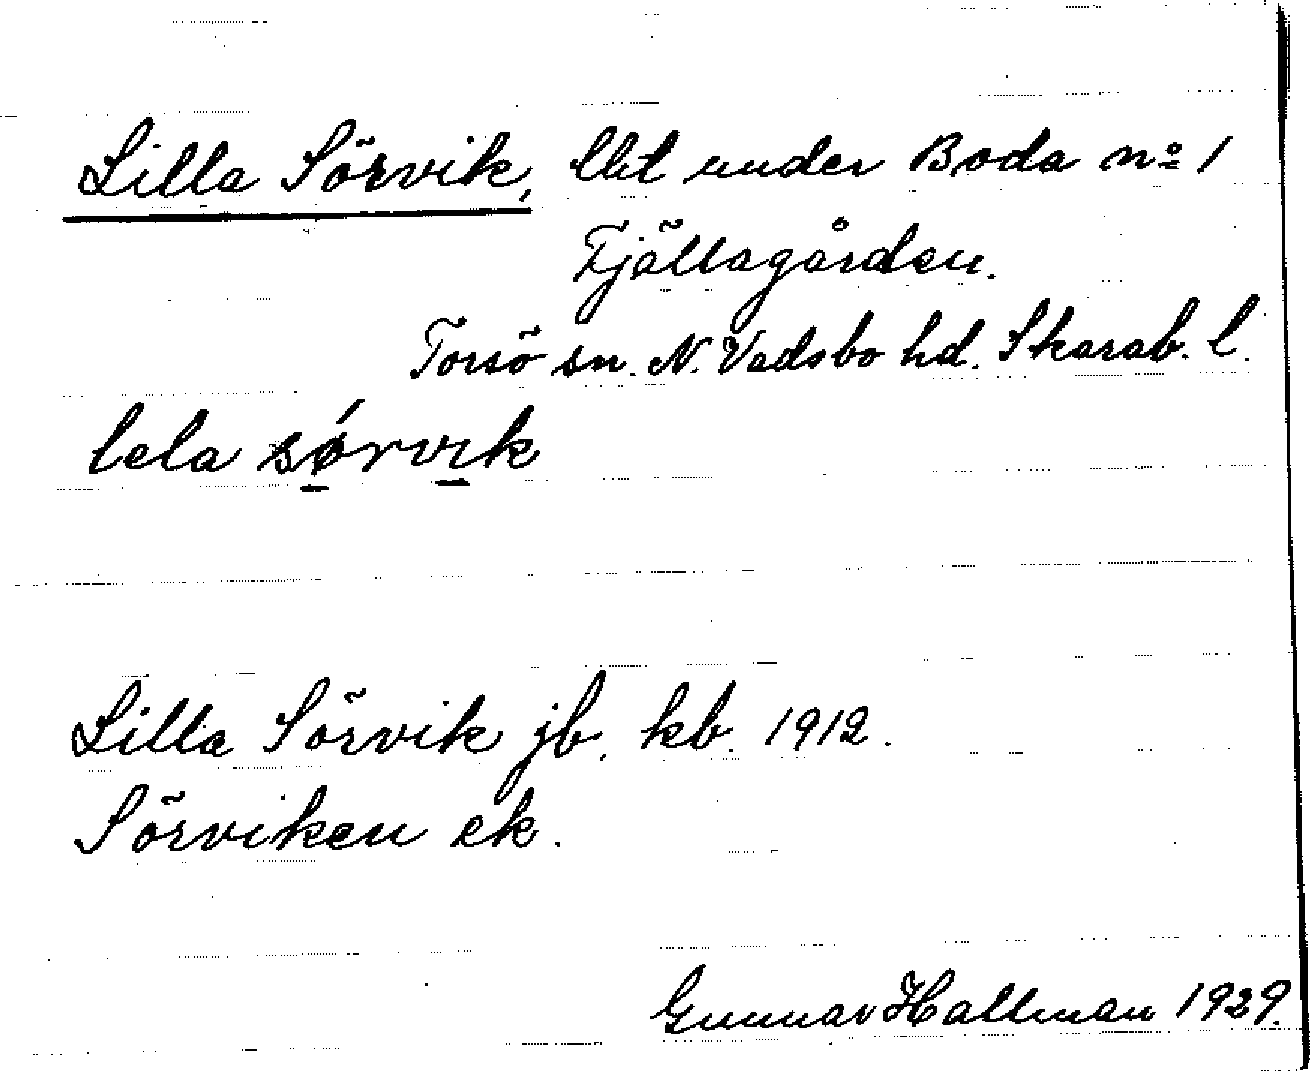 Lilla Sörvik, lht under Boda nº 1
Fjällagården.
Torsö sn. N. Vadsbo hd. Skarab. l.
lela sørvik
Lilla Sörvik jb. kb. 1912.
Sörviken ek.
Gunnar Hallman 1929.